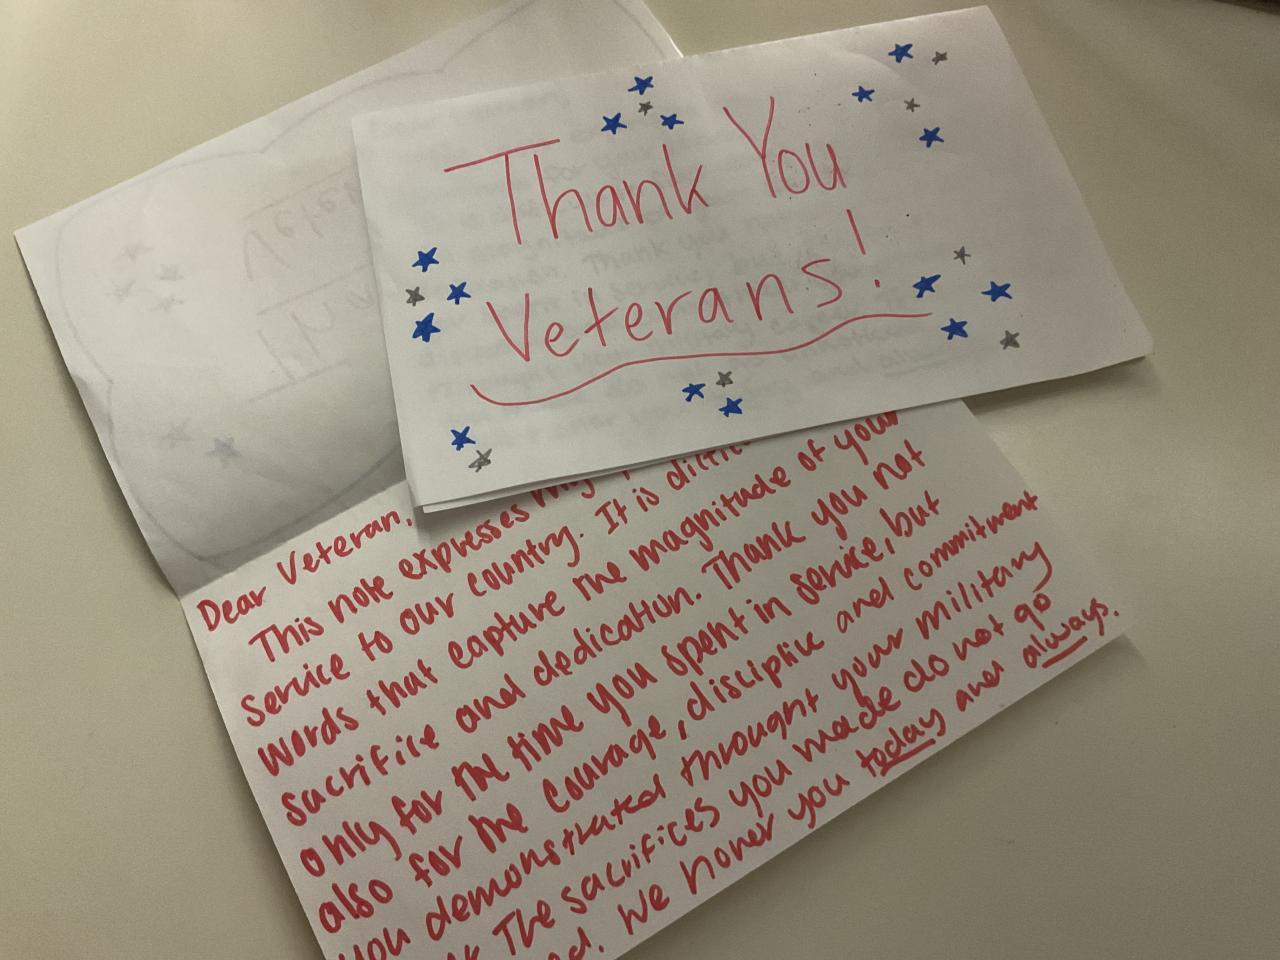 Thank You
Veterans!
Dear Veteran,
This note expresses my
service to our country. It is
words that capture the magnitude of your
sacrifice and dedication. Thank you not
only for the time you spent in service, but
also for the courage, discipline and commitment
you demonstrated throught your military
The sacrifices you made do not go
We honor you today and always.